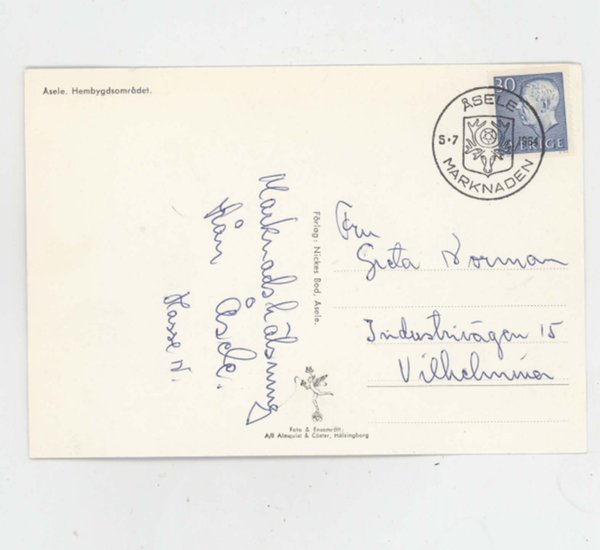 Åsele. Hembygdsområdet.
30
SVERIGE
ÅSELE
5-7 1964
MARKNADEN
Marknadshälsning
från Åsele.
Hasse N.
Förlag: Nickes Bod, Åsele.
Fru
Greta Norman
Industrivägen 15
Vilhelmina
Foto & Ensamrätt:
A/B Almquist & Cöster, Hälsingborg